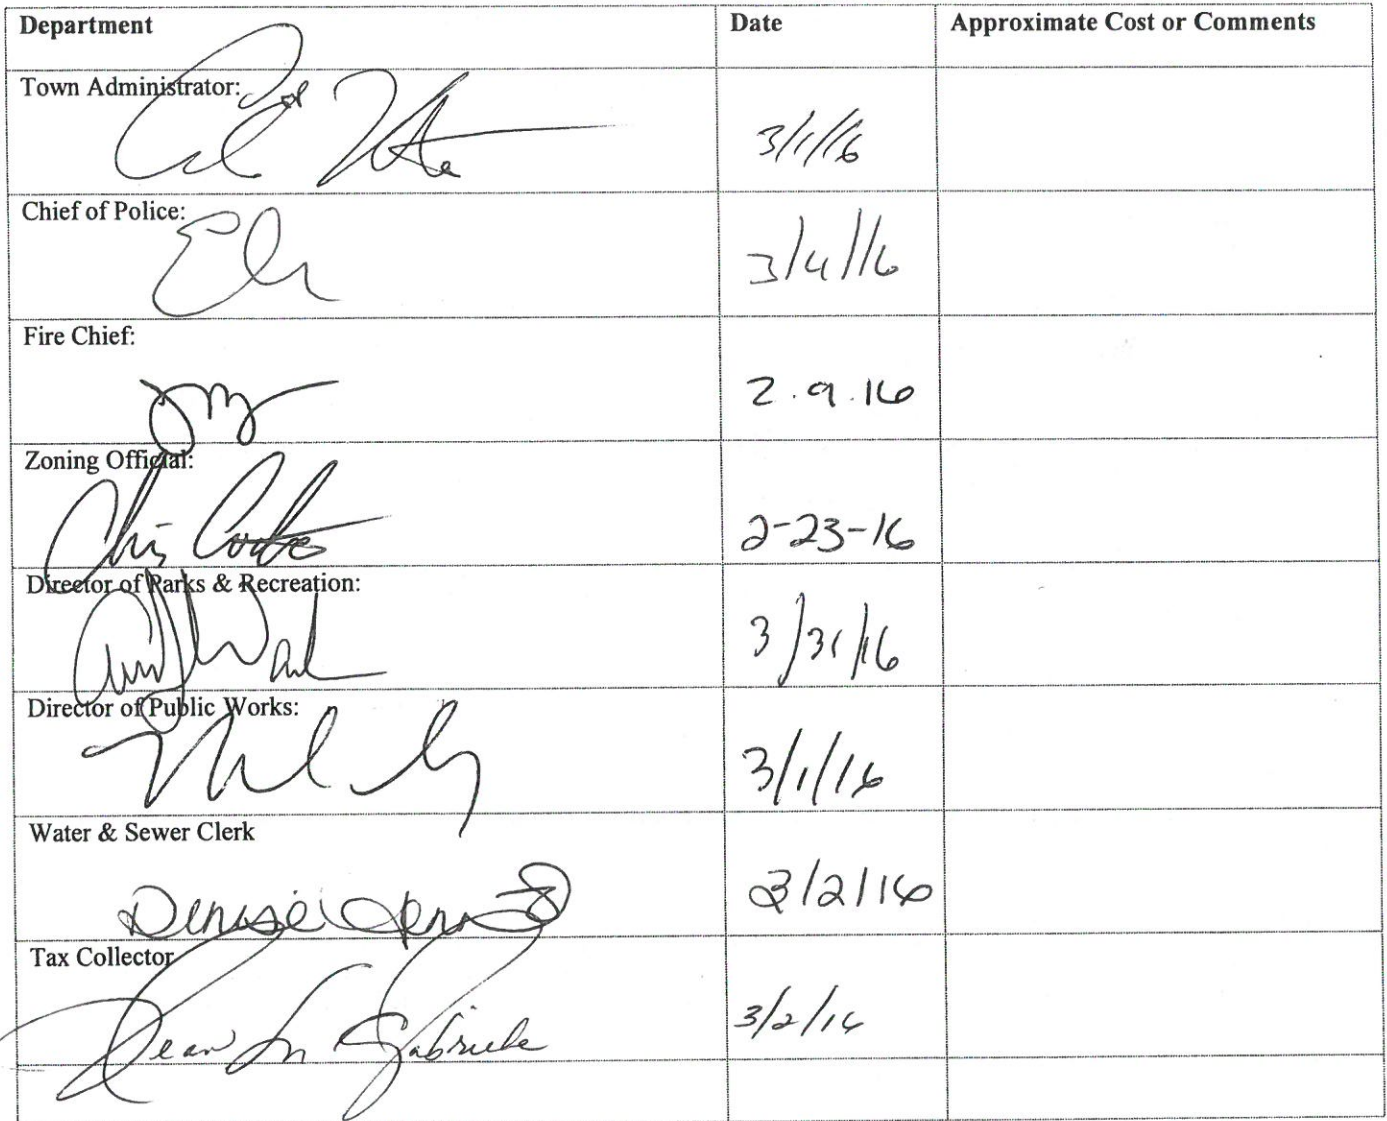 Department Date Approximate Cost or Comments
Town Administrator:
3/1/16
Chief of Police:
3/4/16
Fire Chief:
2.9.16
Zoning Official:
Chris
2-23-16
Director of Parks & Recreation:
3/31/16
Director of Public Works:
3/1/16
Water & Sewer Clerk
Denise
3/2/16
Tax Collector
Jean M Gabriele
3/2/16